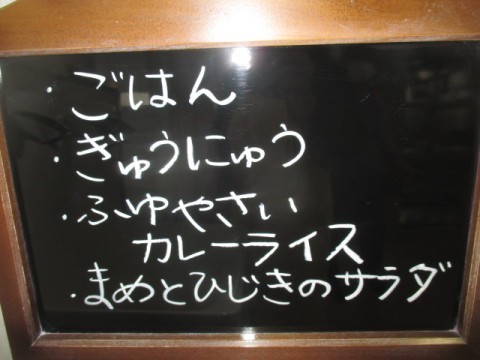 ・ごはん
・ぎゅうにゅう
・ふゆやさい
カレーライス
・まめとひじきのサラダ